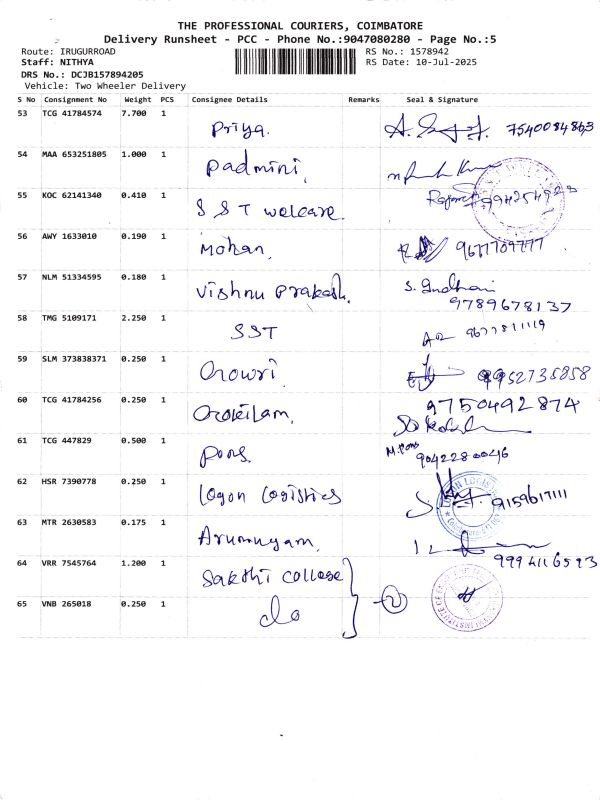 THE PROFESSIONAL COURIERS, COIMBATORE
Delivery Runsheet - PCC - Phone No.:9047080280 - Page No.:5
Route: IRUGURROAD
Staff: NITHYA
DRS No.: DCJB157894205
Vehicle: Two Wheeler Delivery
RS No.: 1578942
RS Date: 10-Jul-2025
S No Consignment No Weight PCS Consignee Details Remarks Seal & Signature
53 TCG 41784574 7.700 1 Priya. 7540084863
54 MAA 653251805 1.000 1 Padmini,
55 KOC 62141340 0.410 1 S S T welcare.
56 AWY 1633010 0.190 1 Mohan, 9677789777
57 NLM 51334595 0.180 1 Vishnu Prakash. S. Indhani
9789678137
58 TMG 5109171 2.250 1 SST 9677811119
59 SLM 373838371 0.250 1 Orowri. 9952735858
60 TCG 41784256 0.250 1 Orokilam, 9750492874
61 TCG 447829 0.500 1 Pons. M.Pons
9042280046
62 HSR 7390778 0.250 1 logon logistics 9159617111
63 MTR 2630583 0.175 1 Arumugam,
64 VRR 7545764 1.200 1 Sakthi college 9994116593
65 VNB 265018 0.250 1 do 2